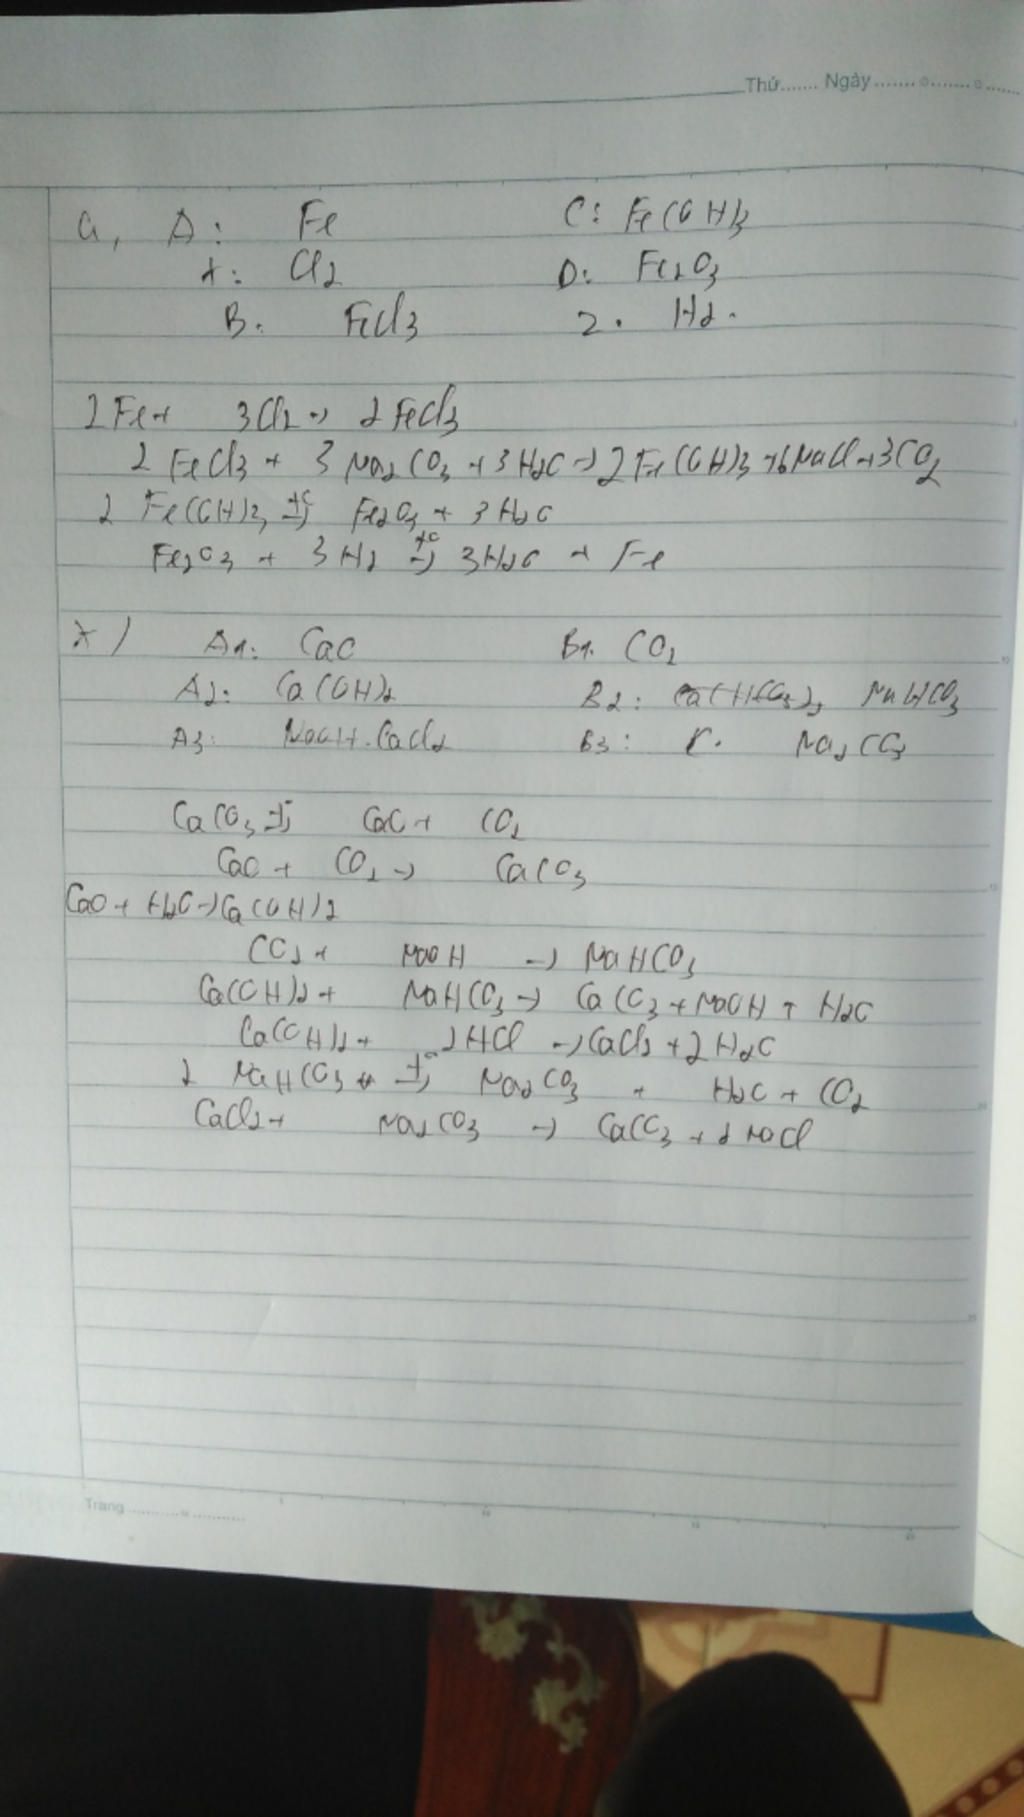 Thứ....... Ngày.......
a, A: Fe C: Fe(OH)3
X: Cl2 D: Fe2O3
B: FeCl3 Z: H2.
2Fe + 3Cl2 → 2FeCl3
2FeCl3 + 3Na2CO3 + 3H2O → 2Fe(OH)3 + 6NaCl + 3CO2
2Fe(OH)3 t°→ Fe2O3 + 3H2O
Fe2O3 + 3H2 t°→ 3H2O + Fe
*) A1: CaO B1: CO2
A2: Ca(OH)2 B2: Ca(HCO3)2, NaHCO3
A3: CaCl2 B3: Na2CO3
CaCO3 t°→ CaO + CO2
CaO + CO2 → CaCO3
CaO + H2O → Ca(OH)2
CO2 + NaOH → NaHCO3
Ca(OH)2 + NaHCO3 → CaCO3 + NaOH + H2O
Ca(OH)2 + 2HCl → CaCl2 + 2H2O
2NaHCO3 t°→ Na2CO3 + H2O + CO2
CaCl2 + Na2CO3 → CaCO3 + 2NaCl
Trang...................